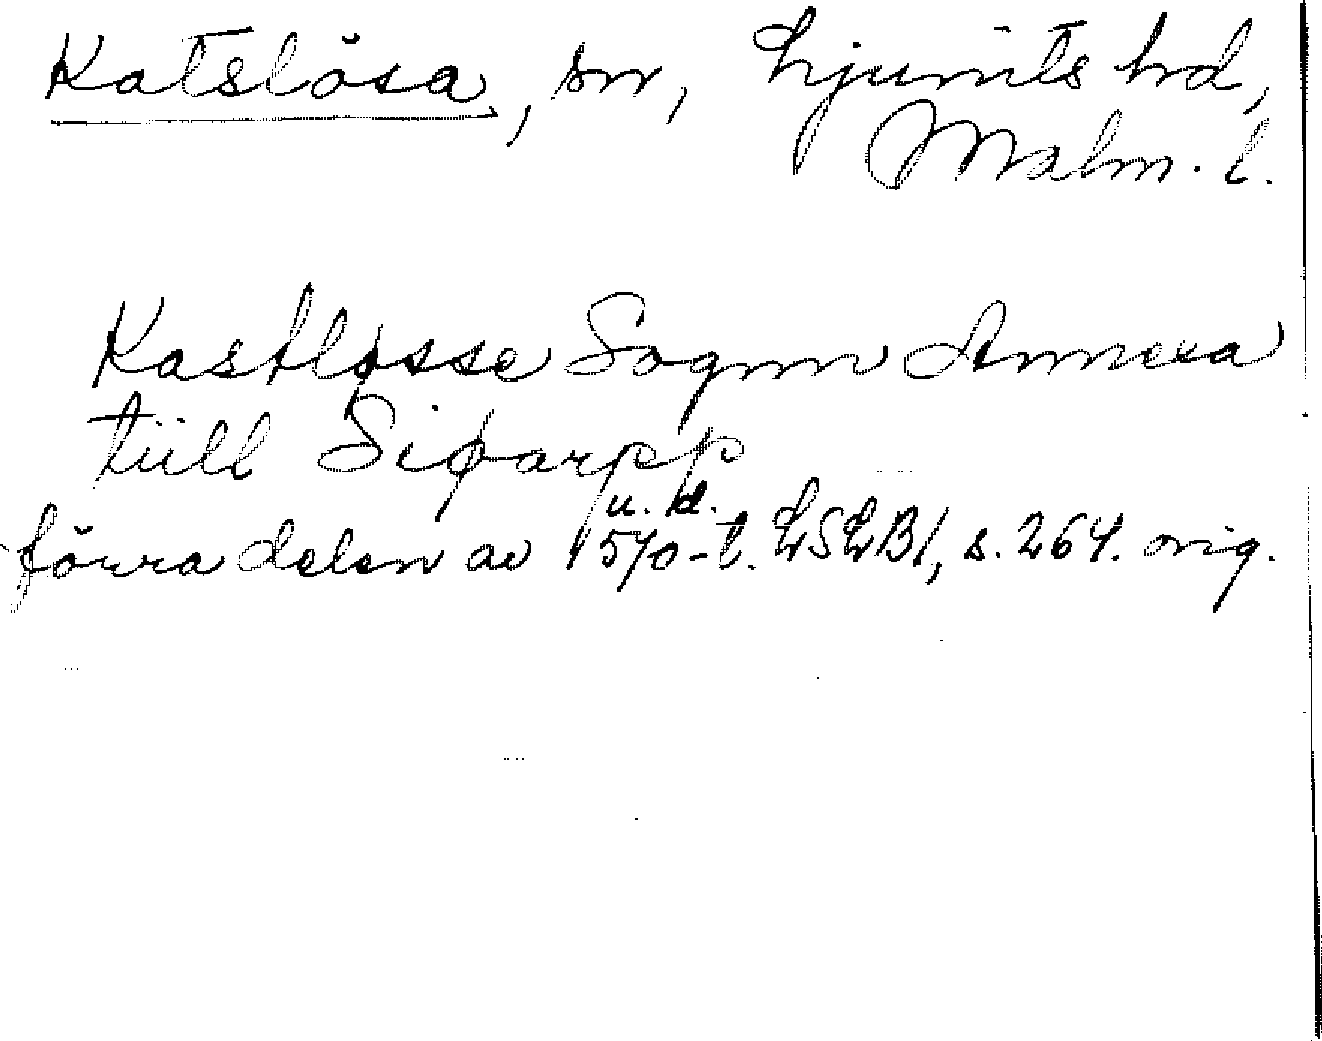 Katslösa, sn, Ljunits hd,
Malm. l.
Kastløsse Sognn Annexa
tiill Siøarpp
u. d.
förra delen av 1570-t. LSLB1, s. 264. orig.